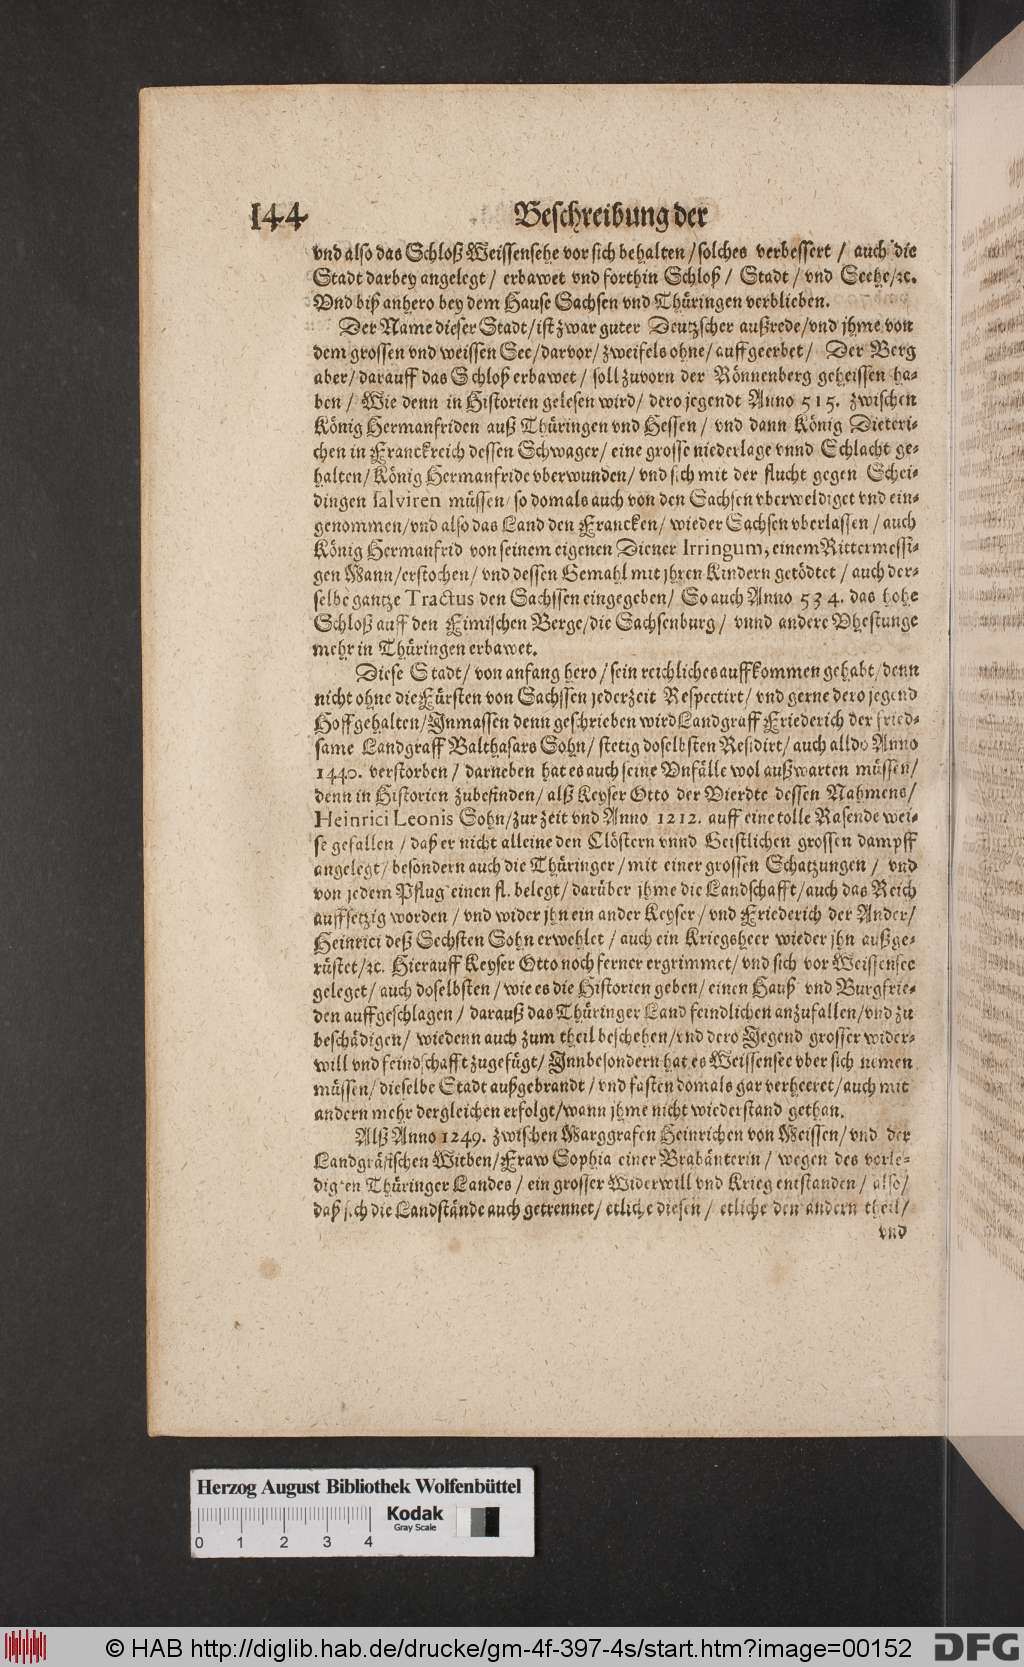 144
Beschreibung der
vnd also das Schloß Weissensehe vor sich behalten / solches verbessert / auch die
Stadt darbey angelegt / erbawet vnd forthin Schloß / Stadt / vnd Seehe /ꝛc.
Vnd biß anhero bey dem Hause Sachsen vnd Thüringen verblieben.
Der Name dieser Stadt / ist zwar guter Deutzscher außrede / vnd jhme von
dem grossen vnd weissen See / darvor / zweifels ohne / auffgeerbet / Der Berg
aber / darauff das Schloß erbawet / soll zuvorn der Rönnenberg geheissen ha-
ben / Wie denn in Historien gelesen wird / dero jegendt Anno 515. zwischen
König Hermanfriden auß Thüringen vnd Hessen / vnd dann König Dieteri-
chen in Franckreich dessen Schwager / eine grosse niederlage vnnd Schlacht ge-
halten / König Hermanfride vberwunden / vnd sich mit der flucht gegen Schei-
dingen salviren müssen / so domals auch von den Sachsen vberweldiget vnd ein-
genommen / vnd also das Land den Francken / wieder Sachsen vberlassen / auch
König Hermanfrid von seinem eigenen Diener Irringum, einem Rittermessi-
gen Mann / erstochen / vnd dessen Gemahl mit jhren Kindern getödtet / auch der-
selbe gantze Tractus den Sachssen eingegeben / So auch Anno 534. das hohe
Schloß auff den Eimischen Berge / die Sachsenburg / vnnd andere Vhestunge
mehr in Thüringen erbawet.
Diese Stadt / von anfang hero / sein reichliches auffkommen gehabt / denn
nicht ohne die Fürsten von Sachssen jederzeit Respectirt / vnd gerne dero jegend
Hoff gehalten / Inmassen denn geschrieben wird Landgraff Friederich der fried-
same Landgraff Balthasars Sohn / stetig doselbsten Residirt / auch alldo Anno
1440. verstorben / darneben hat es auch seine Vnfälle wol außwarten müssen /
denn in Historien zubefinden / alß Keyser Otto der Vierdte dessen Nahmens /
Heinrici Leonis Sohn / zur zeit vnd Anno 1212. auff eine tolle Rasende wei-
se gefallen / daß er nicht alleine den Clöstern vnnd Geistlichen grossen dampff
angelegt / besondern auch die Thüringer / mit einer grossen Schatzungen / vnd
von jedem Pflug einen fl. belegt / darüber jhme die Landschafft / auch das Reich
auffsetzig worden / vnd wider jhn ein ander Keyser / vnd Friederich der Ander /
Heinrici deß Sechsten Sohn erwehlet / auch ein Kriegsheer wieder jhn außge-
rüstet /ꝛc. Hierauff Keyser Otto noch ferner ergrimmet / vnd sich vor Weissensee
geleget / auch doselbsten / wie es die Historien geben / einen Hauß vnd Burgfrie-
den auffgeschlagen / darauß das Thüringer Land feindlichen anzufallen / vnd zu
beschädigen / wie denn auch zum theil beschehen / vnd dero Jegend grosser wider-
will vnd feindschafft zugefügt / Innbesondern hat es Weissensee vber sich nemen
müssen / dieselbe Stadt außgebrandt / vnd fasten domals gar verheeret / auch mit
andern mehr dergleichen erfolgt / wann jhme nicht wiederstand gethan.
Alß Anno 1249. zwischen Marggrafen Heinrichen von Meissen / vnd der
Landgräfischen Witben / Fraw Sophia einer Brabänterin / wegen des verle-
digten Thüringer Landes / ein grosser Widerwill vnd Krieg entstanden / also /
daß sich die Landstände auch getrennet / etliche diesen / etliche den andern theil /
vnd
Herzog August Bibliothek Wolfenbüttel
Kodak
Gray Scale
0 1 2 3 4
© HAB http://diglib.hab.de/drucke/gm-4f-397-4s/start.htm?image=00152
DFG